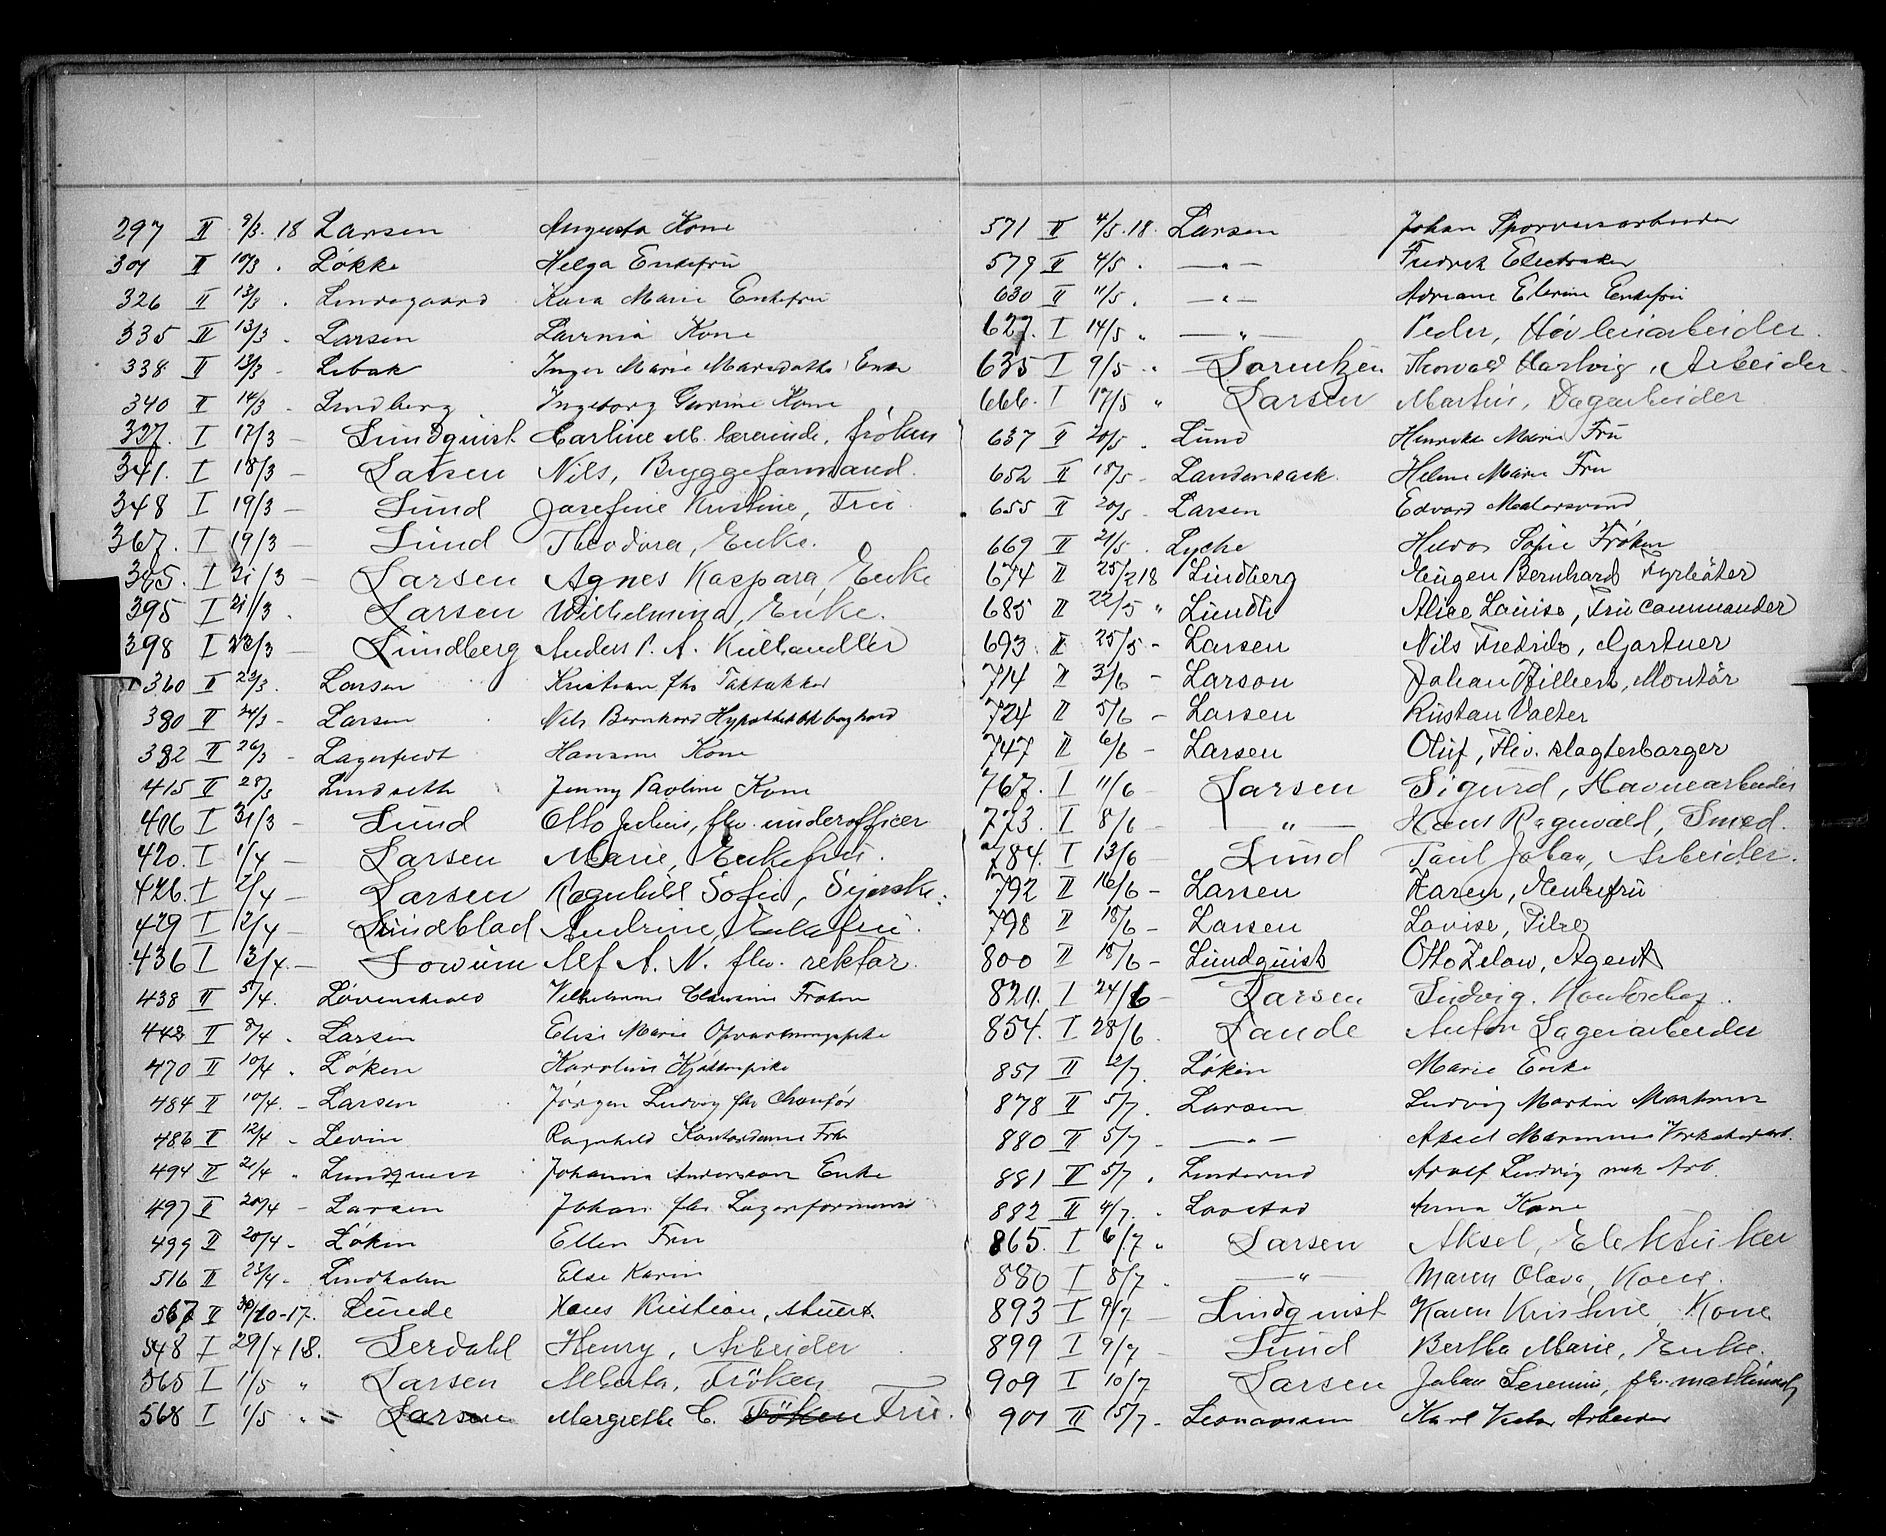 297 II 9/3 18 Larsen Augusta Kone
301 II 10/3 . Løkke Helga Enkefru
326 II 13/3 . Lindsgaard Kaia Marie Enkefru
335 II 13/3 . Larsen Lavinia Kone
338 II 13/3 . Libak Inger Marie Enke
340 II 14/3 . Lindberg Ingeborg Gurine Kone
327. I 17/3 — Lundquist Martine M. lærerinde, frøken
341. I 18/3 — Larsen Nils, Bryggeformand.
348 I 19/3 — Lund Josefine Kristine, Fru
367. I 19/3 — Lund Theodora, Enke.
395. I 21/3 — Larsen Agnes Kaspara, Enke
395 I 21/3 . Larsen Wilhelmina, Enke.
398 I 22/3 — Lundberg Anders P. A. Kulhandler
360 II 23/3 . Larsen Kristian fhv Taktækker
380 II 24/3 - Larsen Nils Bernhard
382 II 26/3 - Lagerfeldt Hansine Kone
415 II 28/3 Lindseth Jenny Pauline Kone
406 I 31/3 — Lund Otto Julius, flv. underofficer
420. I 1/4 — Larsen Marie, Enkefru.
426. I 2/4 — Larsen Ragnhild Sofie, Syerske.
429 I 2/4 — Lindblad Andrine, Enkefru.
436 I 3/4. — Lowum Alf A. N. flv. rektor.
438 II 5/4. Løvenskiold Vilhelmine Frøken
442 II 8/4 . Larsen Elise Marie Opvartningspike
470 II 10/4 . Løken Karoline
484 II 10/4. — Larsen Jørgen Ludvig fhv Chaufør
486 II 12/4 - Levin Ragnhild Kontordame Frk
494 II 21/4 . Lundquist Johanna Anderssen Enke
497 II 20/4 - Larsen Johan fhv Lagerformand
499 II 20/4 - Løken Ellen Fru
516 II 23/4 - Lindholm Else Karin
567 II 30/10-17. Lunde Hans Kristian, stuert
548 I 29/4 18. Lerdahl Henry, Arbeider
565 I 1/5 " Larsen Alberta, Frøken
568 I 1/5 " = Larsen Margrethe C. Frøken Fru.
571 II 4/5.18. Larsen Johan Sporveisarbeider
579 II 4/5 . —"— Fredrik Electriker
630 II 11/5 . —"— Adriane Elerine Enkefru
627. I 14/5 " —"— Peder, Høvleriarbeider.
635 I 9/5 " Lorentzen Thorvald Hartvig, Arbeider.
666. I 17/5 " Larsen Martin, Dagarbeider
637 II 20/5 . Lund Henrikke Marie Fru
652 II 18/5 - Landersack Helene Marie Fru
655 II 20/5 . Larsen Edvard
669 II 21/5 . Lyche Hilda Sofie Frøken
674 II 25/2 18 Lindberg Eugen Bernhard Fyrbøter
685 II 22/5 " Lundh Alice Louise, Fru Commandør
693 II 25/5 - Larsen Nils Fredrik, Gartner
714 II 3/6 - Larson Johan Hilbert, Montör
724 II 5/6 - Larsen Kristan Valter
747 II 6/6 - Larsen Oluf, Flv. slagterborger
767. I 11/6 - Larsen Sigurd, Havnearbeider
773. I 8/6 — —"— Hans Ragnvald, Smed.
784. I 13/6 - Lund Paul Johan, Arbeider.
792 II 16/6 - Larsen Karen, Enkefru
798 II 18/6 - Larsen Lovise, Pike
800 II 18/6 - Lundquist Otto Zelow, Agent
820. I 24/6 — Larsen Ludvig. Kontorchef.
854. I 28/6 . Lande Anton Lagerarbeider
851 II 2/7. Løken Marie Enke
878 II 5/7 . Larsen Ludvig Martin Maskinist
880 II 5/7 - —"— Aksel Marinius Verkstedarb.
881 II 5/7 . Linderud Adolf Ludvig mek Arb.
882 II 4/7. . Laastad Anna Kone
865. I 6/7 " Larsen Aksel, Elektriker
880 I 8/7 . —"— Maren Olava, Kone.
893 I 9/7 — Lindquist Karen Kristine Kone
899 I 9/7 - Lund Bertha Marie, Enke.
909 I 10/7 Larsen Johan Severin, flv.
901 II 15/7 - Leonardsen Karl Victor Arbeider